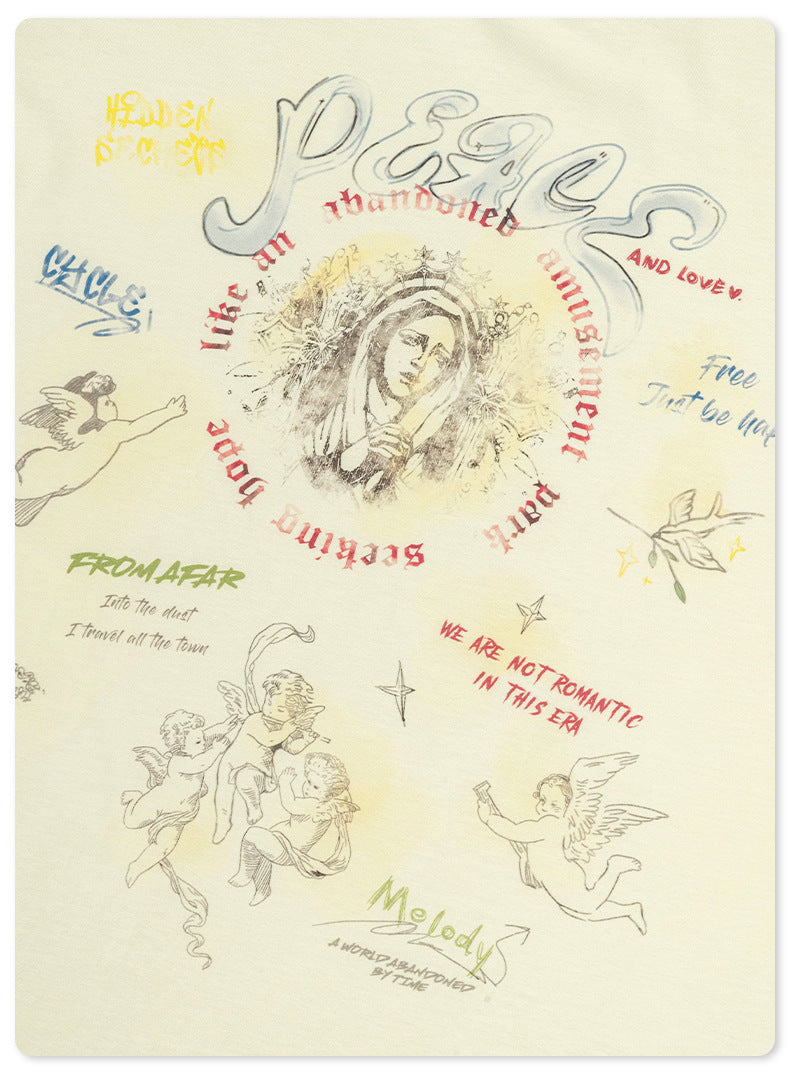 HIDDEN
SECRETT
PEACE
like an abandoned amusement park seeking hope
AND LOVE♥.
CYCLE
Free
Just be hap
FROM AFAR
Into the dust
I travel all the town
WE ARE NOT ROMANTIC
IN THIS ERA
Melody
A WORLD ABANDONED
BY TIME